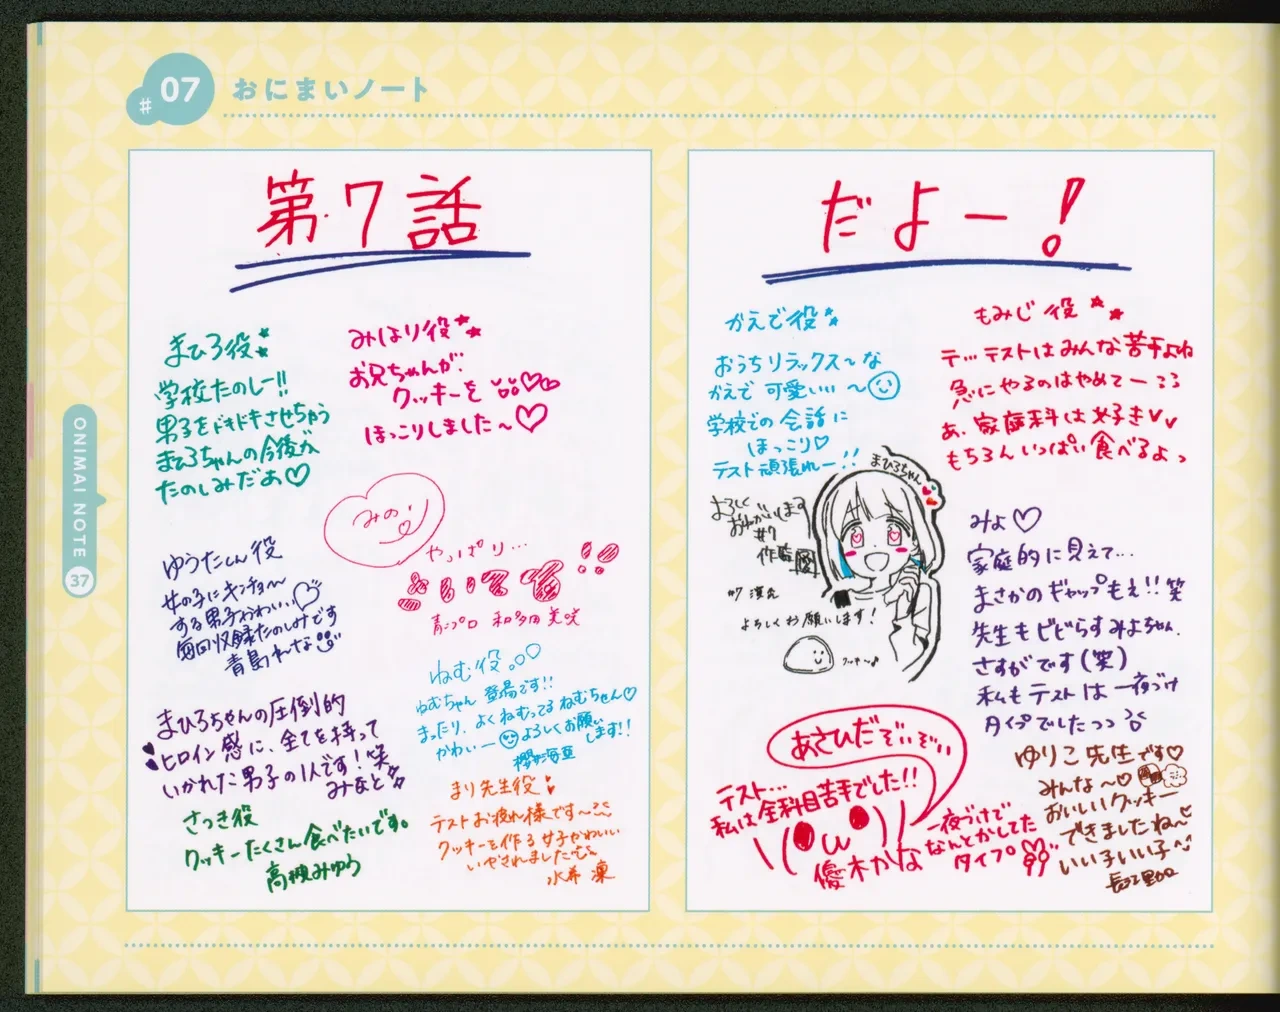 #07 おにまいノート
ONIMAI NOTE
37
第7話
まひろ役
学校たのしー!!
男子をドキドキさせちゃう
まひろちゃんの今後が
たのしみだあ♡
みはり役
お兄ちゃんが
クッキーを
ほっこりしました〜♡
みの
やっぱり…
青二プロ 和多田美咲
ゆうたくん役
女の子にキンチョー
する男子かわいい♡
毎回収録たのしみです
青島
ねむ役
ねむちゃん登場です!!
まったり、よくねむってるねむちゃん♡
かわいー よろしくお願い
します!!
櫻井海亜
まひろちゃんの圧倒的
ヒロイン感に、全てを持って
いかれた男子の1人です!笑
みなと
さつき役
クッキーたくさん食べたいです。
高槻みゆう
まり先生役
テストお疲れ様です〜
クッキーを作る女子かわいい
いやされました
水希 凜
だよー!
かえで役
おうちリラックス〜な
かえで可愛いい〜
学校での会話に
ほっこり♡
テスト頑張れー!!
もみじ役
テ…テストはみんな苦手よね
急にやるのはやめてー
あ、家庭科は好き
もちろんいっぱい食べるよっ
まひろちゃん
よろしく
おねがいします
#7
作監
#7 演出
よろしくお願いします!
クッキー♪
みよ♡
家庭的に見えて…
まさかのギャップもえ!!笑
先生もビビらすみよちゃん。
さすがです(笑)
私もテストは一夜づけ
タイプでしたっっ
あさひだぞぃぞぃ
テスト…
私は全科目苦手でした!!
一夜づけで
なんとかしてた
タイプ
優木かな
ゆりこ先生です♡
みんな〜♡
おいしいクッキー
できましたね〜
いい子いい子
長江里加